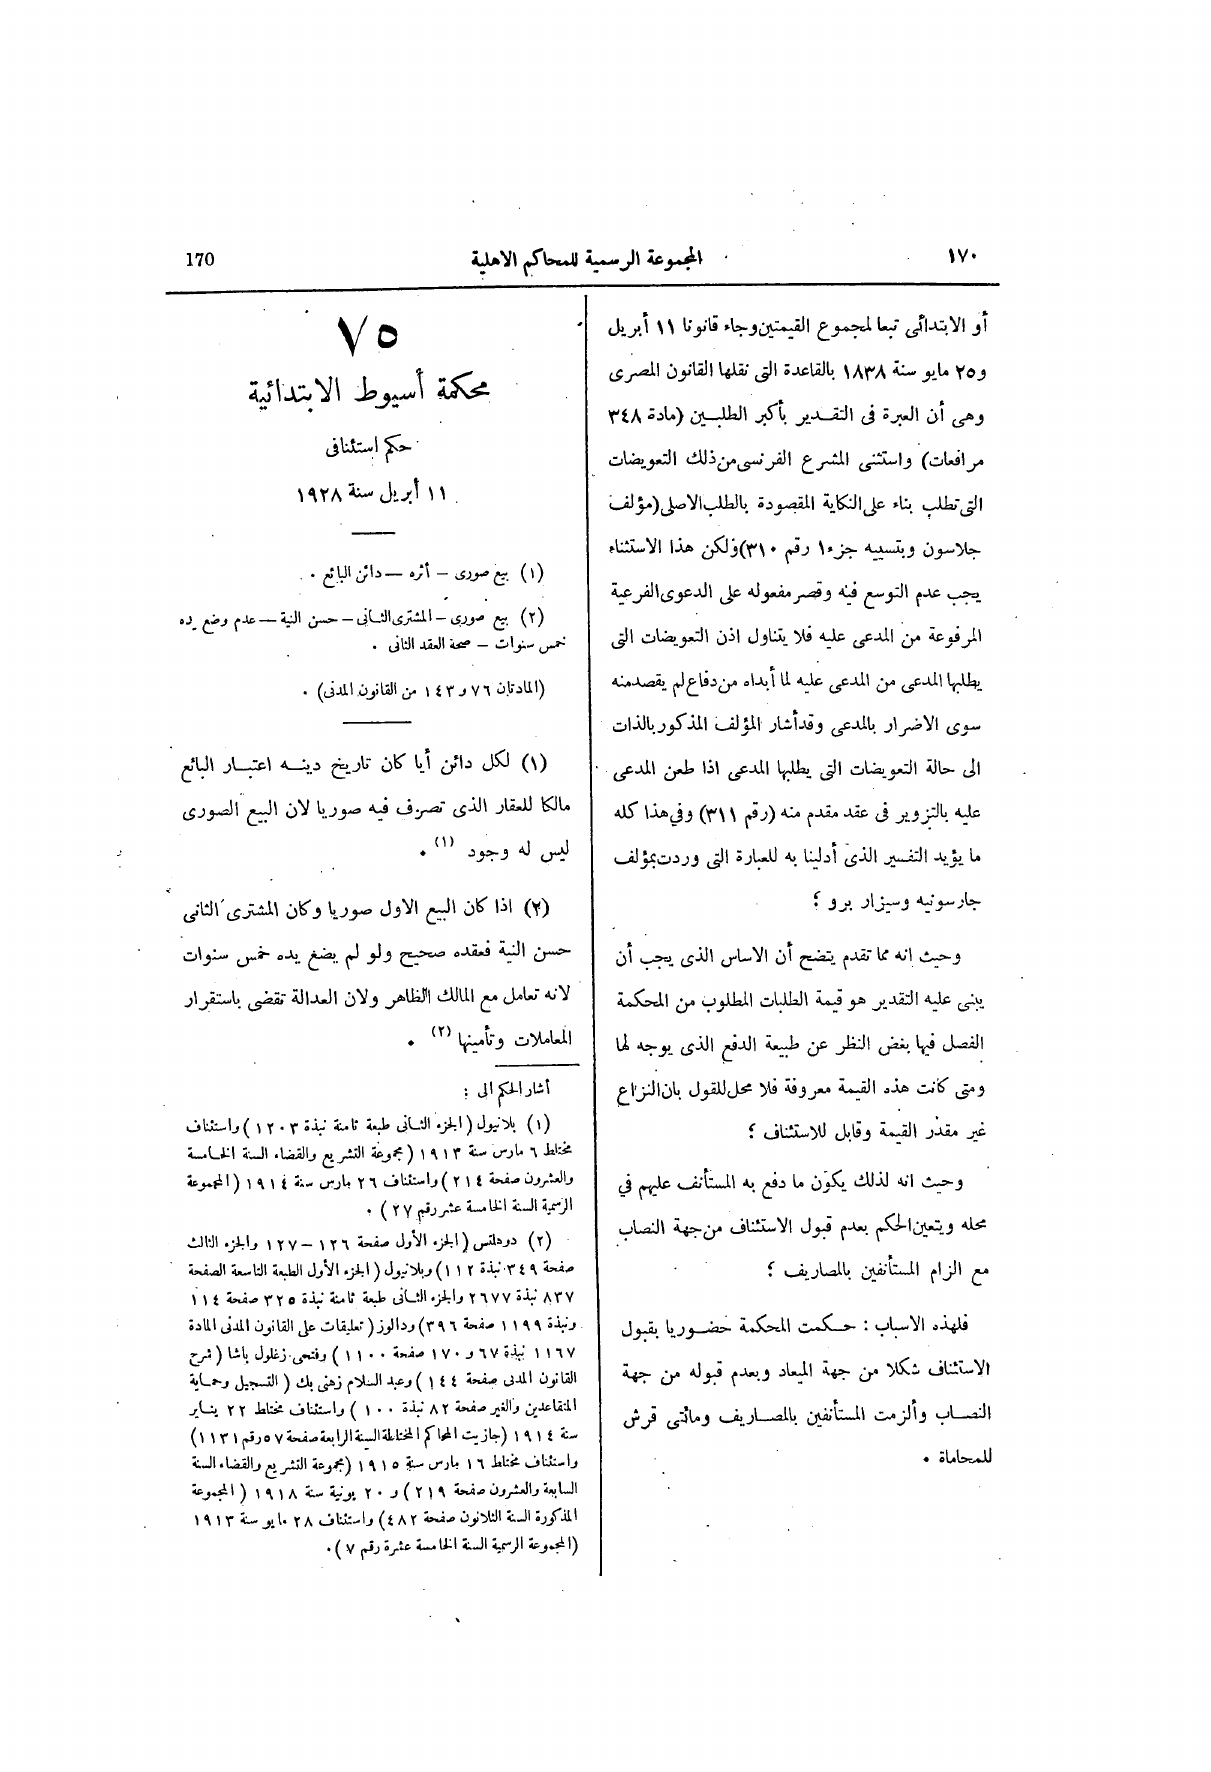 ١٧٠
المجموعة الرسمية للمحاكم الاهلية
170
أو الابتدائى تبعا لمجموع القيمتين وجاء قانونا ١١ أبريل
و٢٥ مايو سنة ١٨٣٨ بالقاعدة التى نقلها القانون المصرى
وهى أن العبرة فى التقدير بأكبر الطلبين (مادة ٣٤٨
مرافعات) واستثنى المشرع الفرنسى من ذلك التعويضات
التى تطلب بناء على النكاية المقصودة بالطلب الاصلى (مؤلف
جلاسون وبتسييه جزء١ رقم ٣١٠) ولكن هذا الاستثناء
يجب عدم التوسع فيه وقصر مفعوله على الدعوى الفرعية
المرفوعة من المدعى عليه فلا يتناول اذن التعويضات التى
يطلبها المدعى من المدعى عليه لما أبداه من دفاع لم يقصد منه
سوى الاضرار بالمدعى وقد أشار المؤلف المذكور بالذات
الى حالة التعويضات التى يطلبها المدعى اذا طعن المدعى
عليه بالتزوير فى عقد مقدم منه (رقم ٣١١) وفى هذا كله
ما يؤيد التفسير الذى أدلينا به للعبارة التى وردت بمؤلف
جارسونيه وسيزار برو ؛
وحيث انه مما تقدم يتضح أن الاساس الذى يجب أن
يبنى عليه التقدير هو قيمة الطلبات المطلوب من المحكمة
الفصل فيها بغض النظر عن طبيعة الدفع الذى يوجه لها
ومتى كانت هذه القيمة معروفة فلا محل للقول بان النزاع
غير مقدر القيمة وقابل للاستئناف ؛
وحيث انه لذلك يكون ما دفع به المستأنف عليهم فى
محله ويتعين الحكم بعدم قبول الاستئناف من جهة النصاب
مع الزام المستأنفين بالمصاريف ؛
فلهذه الاسباب : حكمت المحكمة حضوريا بقبول
الاستئناف شكلا من جهة الميعاد وبعدم قبوله من جهة
النصاب وألزمت المستأنفين بالمصاريف ومائتى قرش
للمحاماة .
٧٥
محكمة أسيوط الابتدائية
حكم استئنافى
١١ أبريل سنة ١٩٢٨
(١) بيع صورى – أثره – دائن البائع .
(٢) بيع صورى – المشترى الثانى – حسن النية – عدم وضع يده
خمس سنوات – صحة العقد الثانى .
(المادتان ٧٦ و ١٤٣ من القانون المدنى) .
(١) لكل دائن أيا كان تاريخ دينه اعتبار البائع
مالكا للعقار الذى تصرف فيه صوريا لان البيع الصورى
ليس له وجود (١) .
(٢) اذا كان البيع الاول صوريا وكان المشترى الثانى
حسن النية فعقده صحيح ولو لم يضع يده خمس سنوات
لانه تعامل مع المالك الظاهر ولان العدالة تقضى باستقرار
المعاملات وتأمينها (٢) .
أشار الحكم الى :
(١) بلانيول (الجزء الثانى طبعة ثامنة نبذة ١٢٠٣) واستئناف
مختلط ٦ مارس سنة ١٩١٣ (مجموعة التشريع والقضاء السنة الخامسة
والعشرون صفحة ٢١٤) واستئناف ٢٦ مارس سنة ١٩١٤ (المجموعة
الرسمية السنة الخامسة عشر رقم ٢٧) .
(٢) دوهلتس (الجزء الأول صفحة ١٢٦ – ١٢٧ والجزء الثالث
صفحة ٣٤٩ نبذة ١١٢) وبلانيول (الجزء الأول الطبعة التاسعة الصفحة
٨٣٧ نبذة ٢٦٧٧ والجزء الثانى طبعة ثامنة نبذة ٣٢٥ صفحة ١١٤
ونبذة ١١٩٩ صفحة ٣٩٦) ودالوز (تعليقات على القانون المدنى المادة
١١٦٧ نبذة ٦٧ و ١٧٠ صفحة ١١٠٠) وفتحى زغلول باشا (شرح
القانون المدنى صفحة ١٤٤) وعبد السلام زهنى بك (التسجيل وحماية
المتقاعدين والغير صفحة ٨٢ نبذة ١٠٠) واستئناف مختلط ٢٢ يناير
سنة ١٩١٤ (جازيت المحاكم المختلطة السنة الرابعة صفحة ٥٧ رقم ١١٣١)
واستئناف مختلط ١٦ مارس سنة ١٩١٥ (مجموعة التشريع والقضاء السنة
السابعة والعشرون صفحة ٢١٩) و ٢٠ يونية سنة ١٩١٨ (المجموعة
المذكورة السنة الثلاثون صفحة ٤٨٢) واستئناف ٢٨ مايو سنة ١٩١٣
(المجموعة الرسمية السنة الخامسة عشرة رقم ٧) .